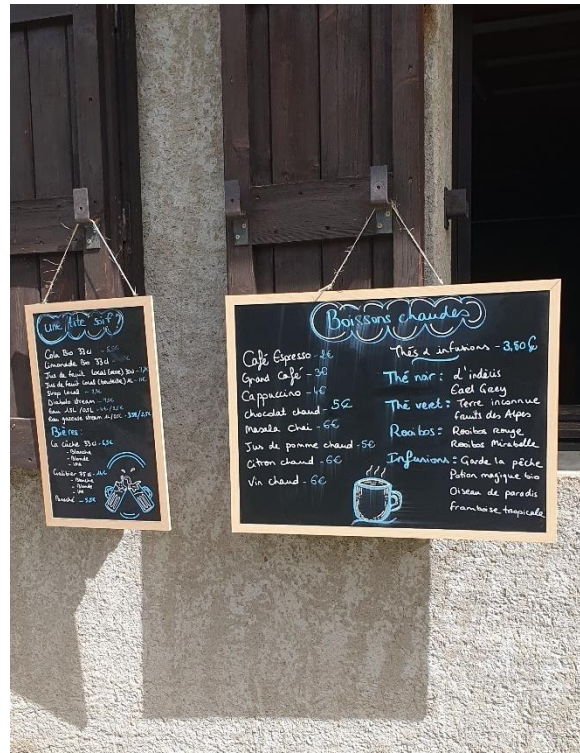 une tite soif?
Cola Bio 33cl
Limonade Bio 33cl
Jus de fruit local
Jus de fruit local (bouteille) 1L
Sirop local
Diabolo stream
Eau 1,5L / 0,5L
Eau gazeuse stream 1L/0,5L
Bières:
La cûche 33cl - 6,5€
- Blanche
- Blonde
- IPA
Galibier 75cl
- Blanche
- Blonde
- IPA
Panaché
Boissons chaudes
Café Espresso
Grand Café - 3€
Cappuccino - 4€
chocolat chaud - 5€
Masala Chai - 6€
Jus de pomme chaud - 5€
Citron chaud - 6€
Vin chaud - 6€
Thés & infusions - 3,80€
Thé noir: d'indélis
Earl Grey
Thé vert: Terre inconnue
fruits des Alpes
Rooibos: Rooibos rouge
Rooibos Mirabelle
Infusions: Garde la pêche
Potion magique bio
Oiseau de paradis
framboise tropicale